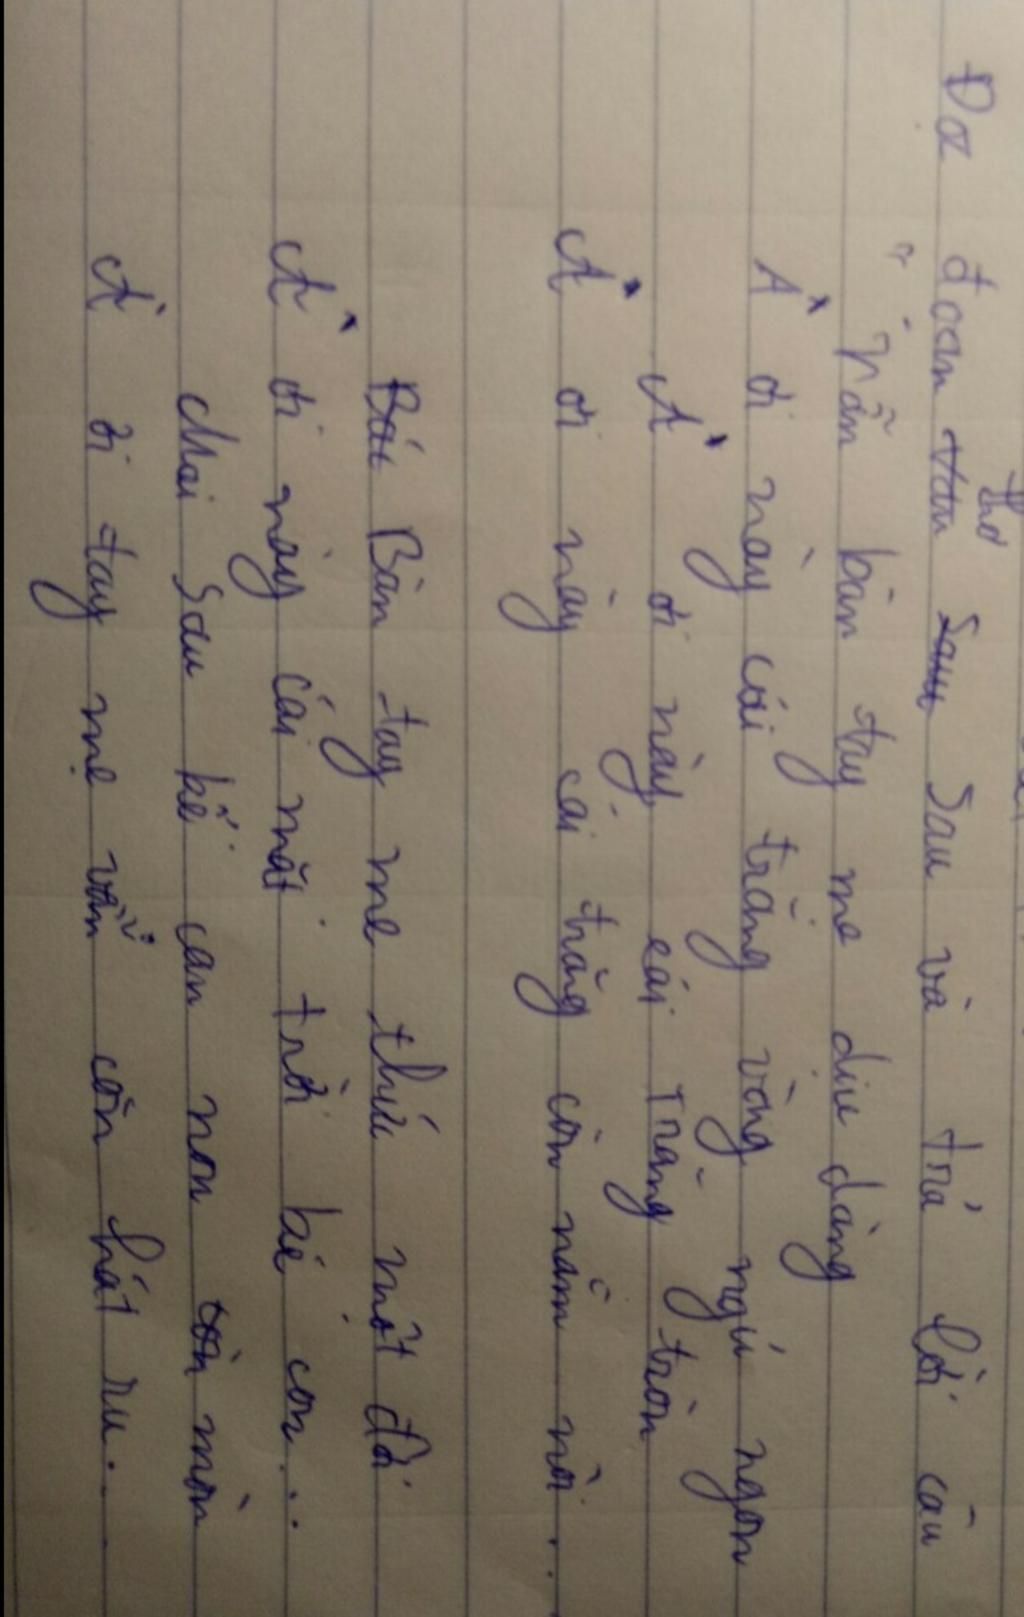 Đọc đoạn thơ sau và trả lời câu
" Vẫn bàn tay mẹ dịu dàng
À ơi này cái trăng vàng ngủ ngon
À ơi này cái Trăng tròn
À ơi này cái trăng còn nằm nôi...
Bàn tay mẹ thức một đời
À ơi này cái mặt trời bé con...
Mai sau bể cạn non mòn
À ơi tay mẹ vẫn còn hát ru...